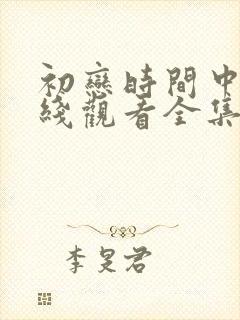 初戀時間中
綫觀看全集
李旻君